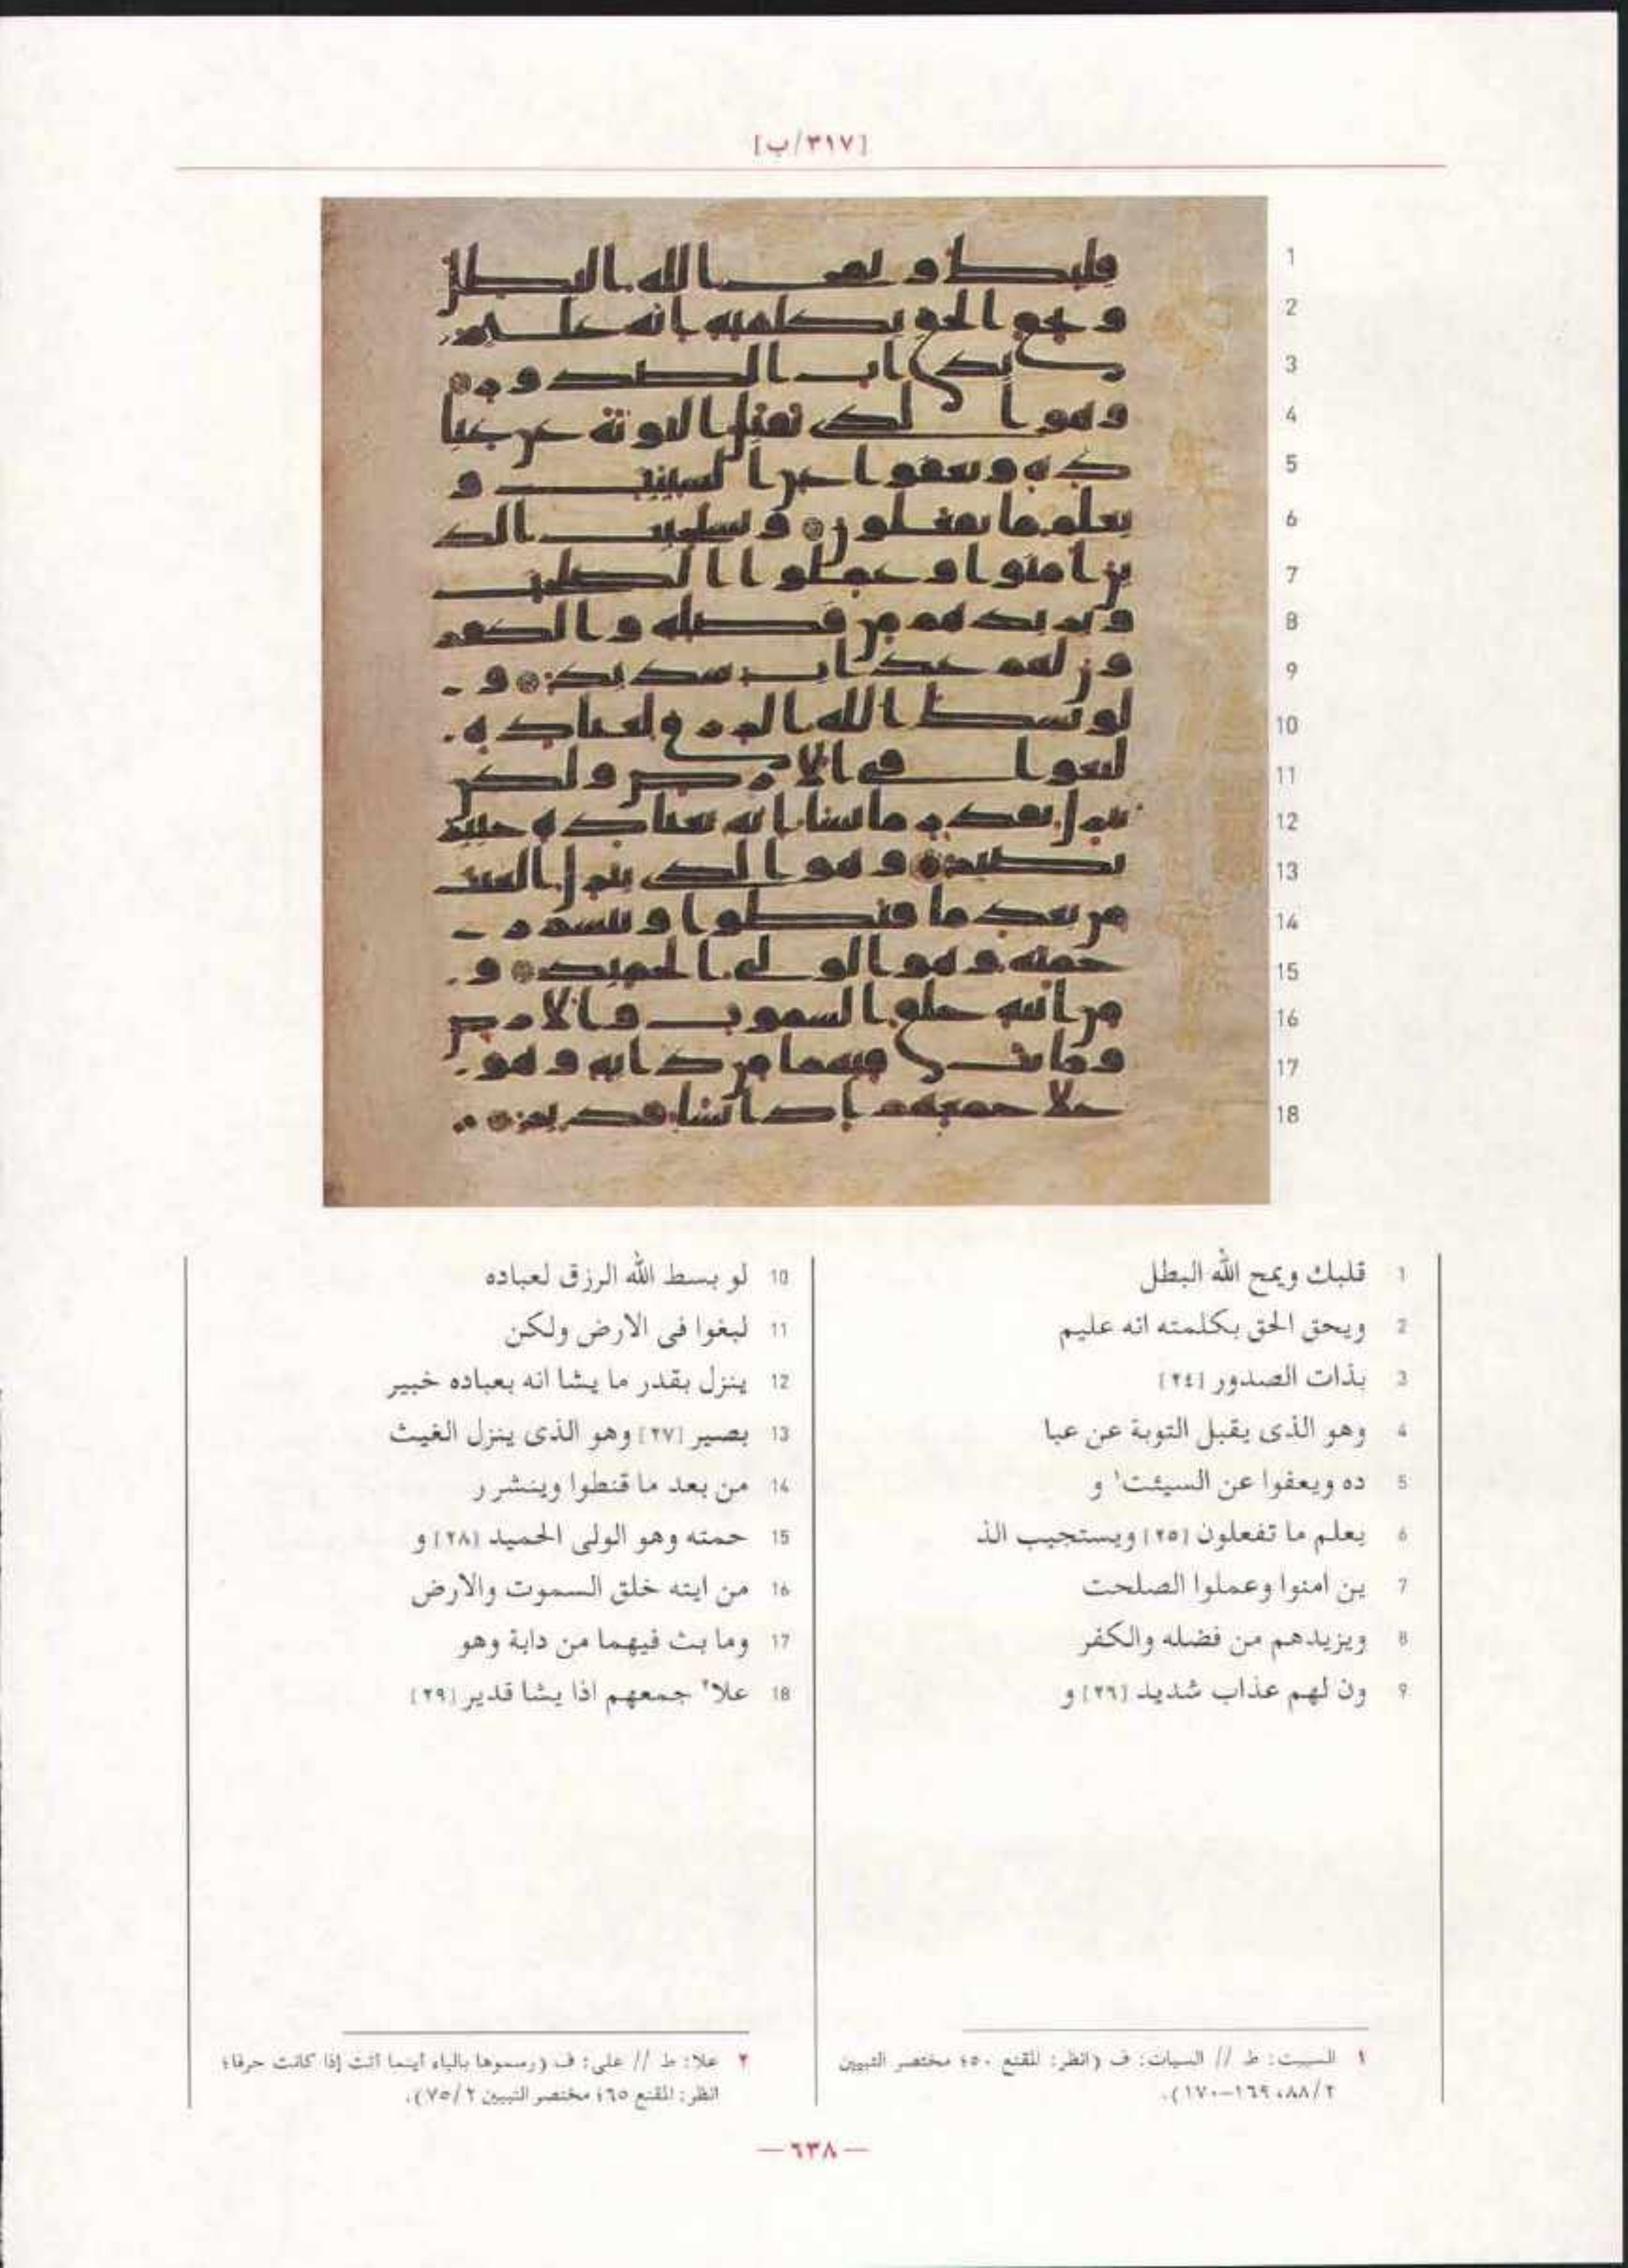 [٣١٧/ب]
1
2
3
4
5
6
7
8
9
10
11
12
13
14
15
16
17
18
1 قلبك ويمح الله البطل
2 ويحق الحق بكلمته انه عليم
3 بذات الصدور [٢٤]
4 وهو الذى يقبل التوبة عن عبا
5 ده ويعفوا عن السيئت١ و
6 يعلم ما تفعلون [٢٥] ويستجيب الذ
7 ين امنوا وعملوا الصلحت
8 ويزيدهم من فضله والكفر
9 ون لهم عذاب شديد [٢٦] و
10 لو بسط الله الرزق لعباده
11 لبغوا فى الارض ولكن
12 ينزل بقدر ما يشا انه بعباده خبير
13 بصير [٢٧] وهو الذى ينزل الغيث
14 من بعد ما قنطوا وينشر ر
15 حمته وهو الولى الحميد [٢٨] و
16 من ايته خلق السموت والارض
17 وما بث فيهما من دابة وهو
18 علا٢ جمعهم اذا يشا قدير [٢٩]
١ السيت: ط // السيات: ف (انظر: المقنع ٥٠؛ مختصر التبيين
٢/٨٨، ١٦٩-١٧٠).
٢ علا: ط // على: ف (رسموها بالياء أينما أتت إذا كانت حرفا؛
انظر: المقنع ٦٥؛ مختصر التبيين ٢/٧٥).
— ٦٣٨ —